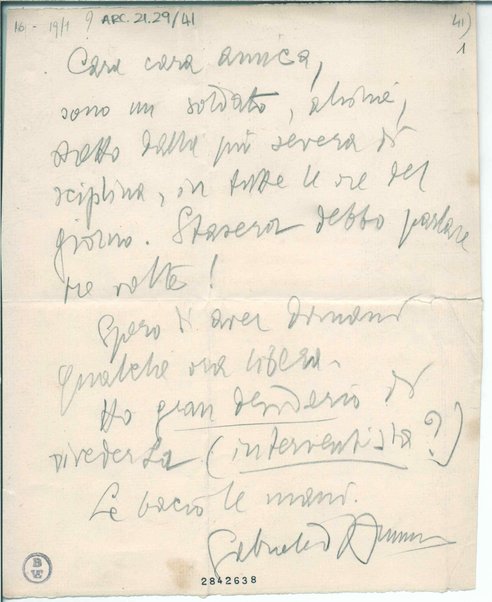 10 - 19/1 9 ARC.21.29/41 41)
1
Cara cara amica,
sono un soldato, ahimè,
stretto dalla più severa di
sciplina, in tutte le ore del
giorno. Stasera debbo parlare
tre volte!
Spero di aver domani
qualche ora libera.
Ho gran desiderio di
rivederLa (interventista?)
Le bacio le mani.
Gabriele d'Annunzio
B
W
2842638